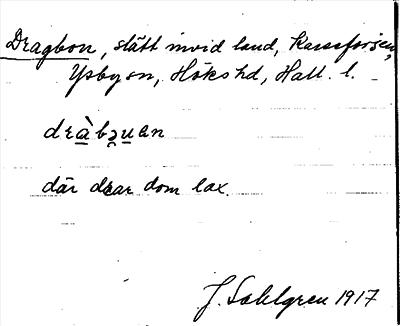 Dragbon, slätt invid land, Karseforsen,
Ysby sn, Höks hd, Hall. l.
dràbəuɐn
där drar dom lax.
J. Sahlgren 1917